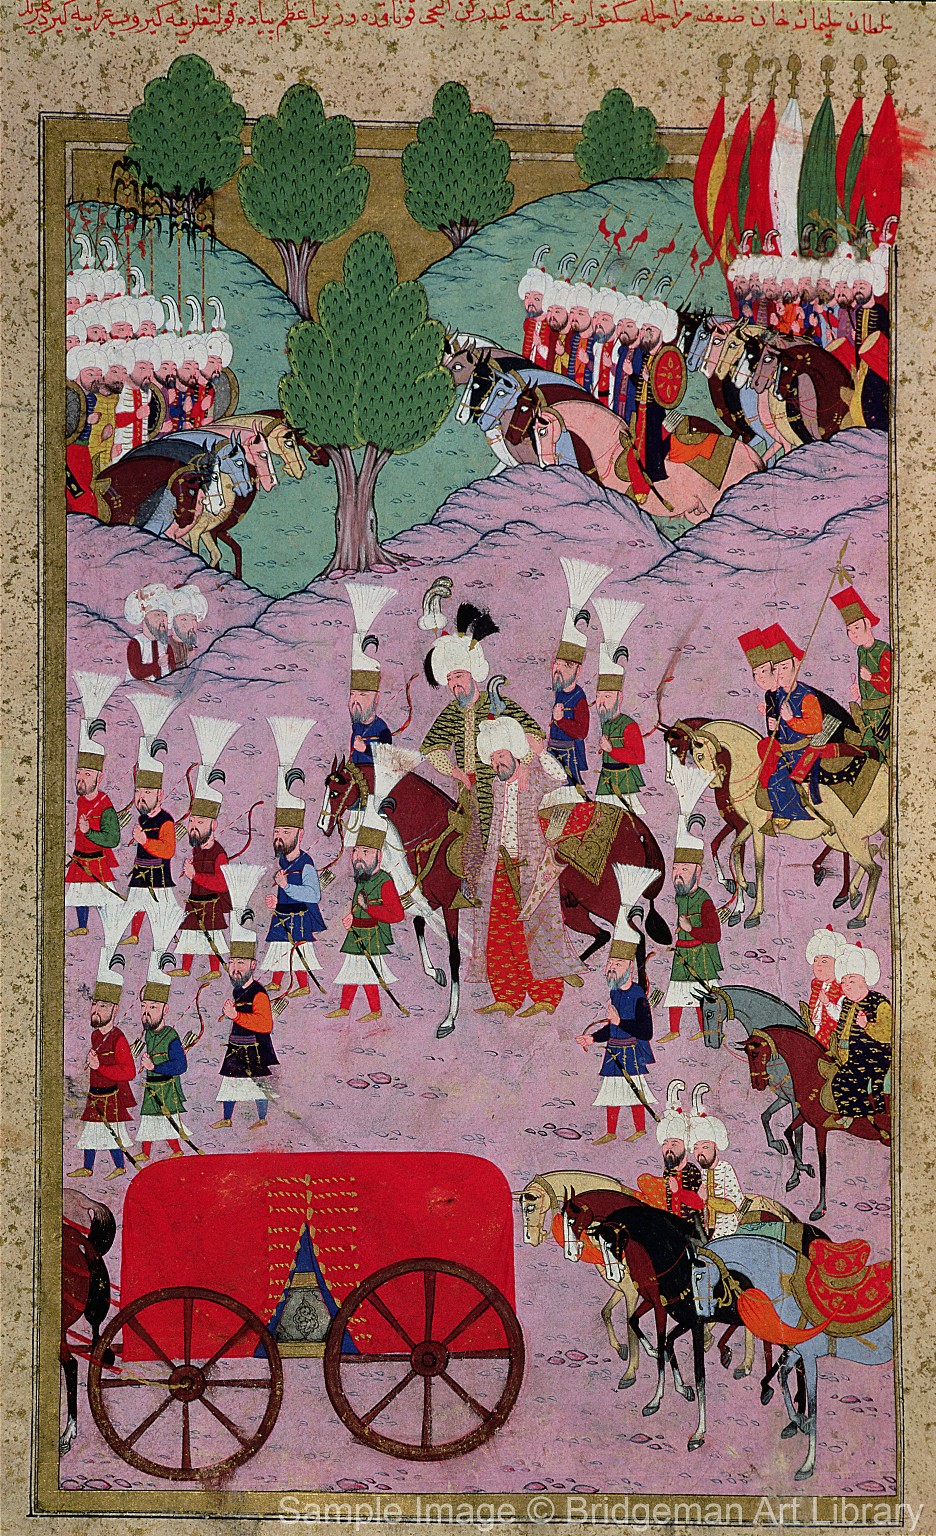 سلطان سلیمان خان ضعف مزاجله سکتوار غزاسنه کیدرکن ایلچی قوناقده وزیر اعظم پیاده قولتقلرینه کیروب عرابیه کیردیلر
Sample Image © Bridgeman Art Library